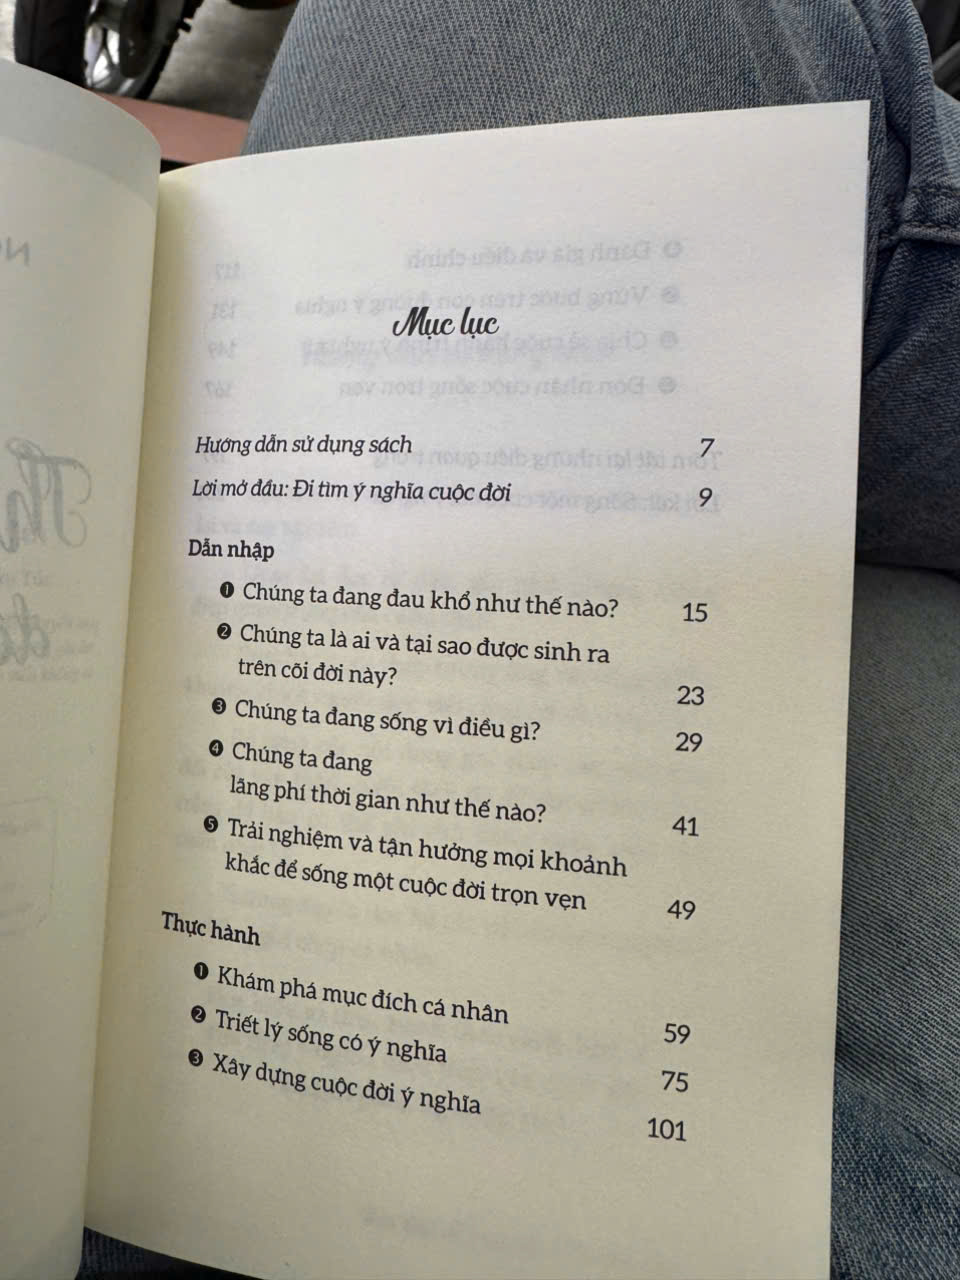 Mục lục
Hướng dẫn sử dụng sách 7
Lời mở đầu: Đi tìm ý nghĩa cuộc đời 9
Dẫn nhập
❶ Chúng ta đang đau khổ như thế nào? 15
❷ Chúng ta là ai và tại sao được sinh ra
trên cõi đời này? 23
❸ Chúng ta đang sống vì điều gì? 29
❹ Chúng ta đang
lãng phí thời gian như thế nào? 41
❺ Trải nghiệm và tận hưởng mọi khoảnh
khắc để sống một cuộc đời trọn vẹn 49
Thực hành
❶ Khám phá mục đích cá nhân 59
❷ Triết lý sống có ý nghĩa 75
❸ Xây dựng cuộc đời ý nghĩa 101